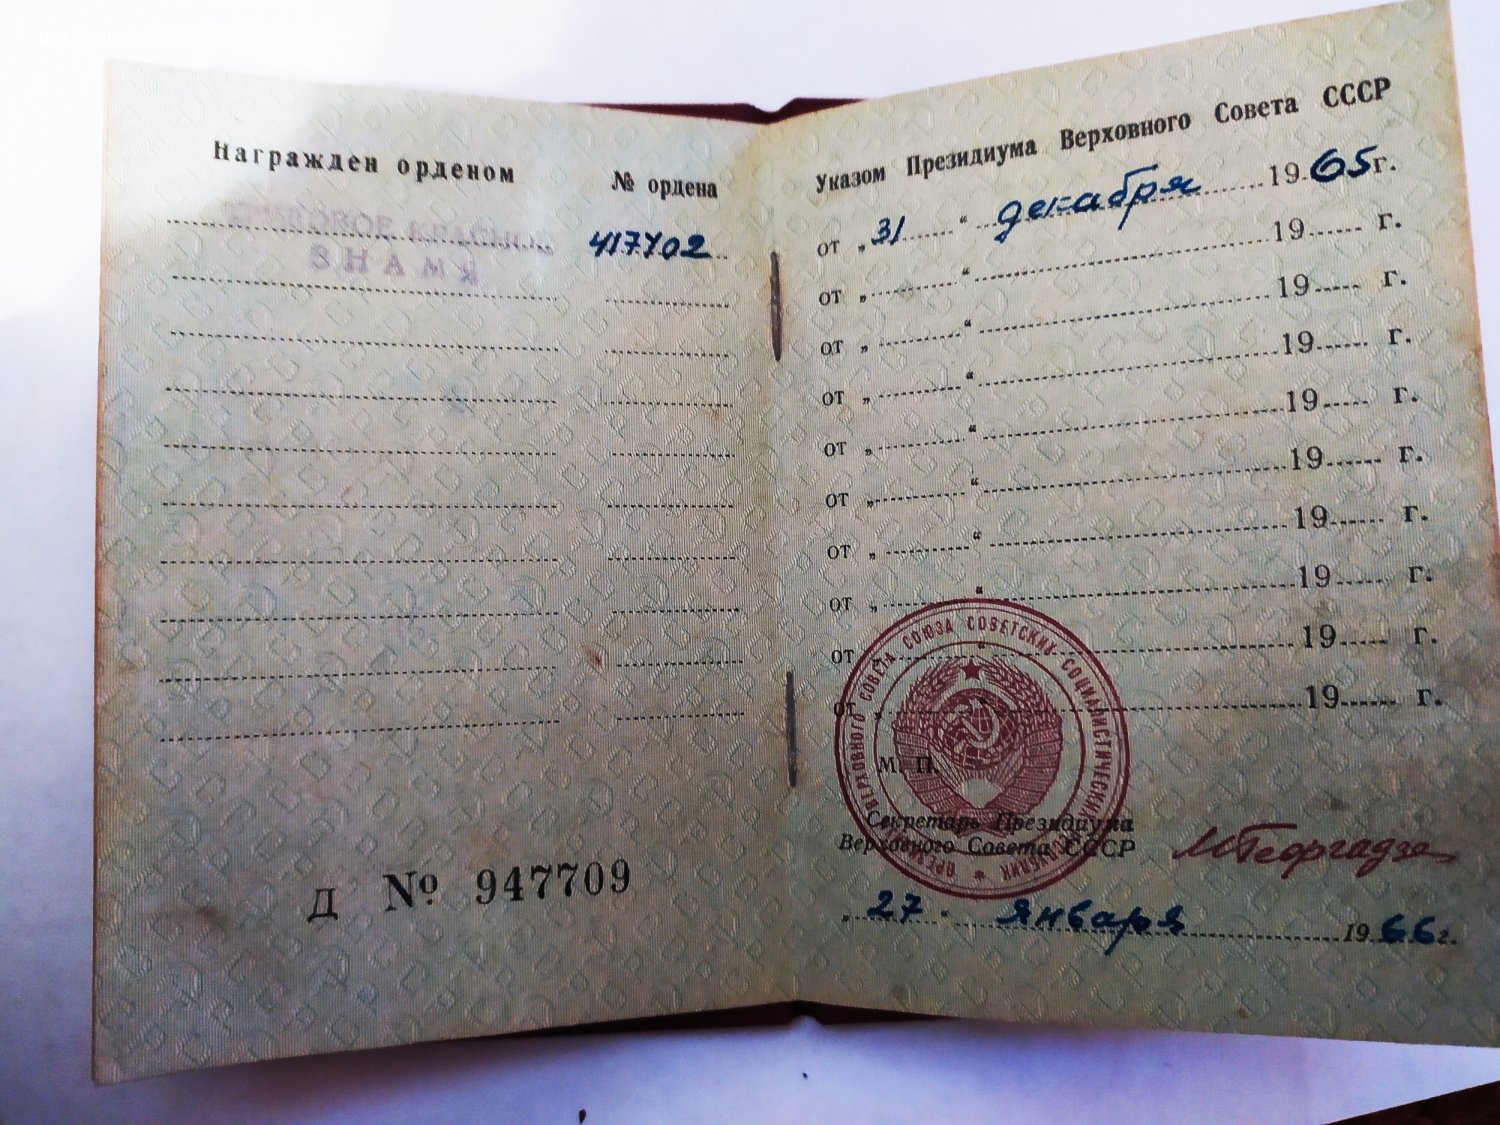 Награжден орденом
№ ордена
ТРУДОВОЕ КРАСНОЕ
ЗНАМЯ
417702
Д № 947709
Указом Президиума Верховного Совета СССР
от „31“ декабря 1965г.
от „ “ 19 г.
от „ “ 19 г.
от „ “ 19 г.
от „ “ 19 г.
от „ “ 19 г.
от „ “ 19 г.
от „ “ 19 г.
от „ “ 19 г.
от „ “ 19 г.
М. П.
ВЕРХОВНОГО СОВЕТА СОЮЗА СОВЕТСКИХ СОЦИАЛИСТИЧЕСКИХ
Секретарь Президиума
Верховного Совета СССР
МГеоргадзе
„27“ января 1966г.